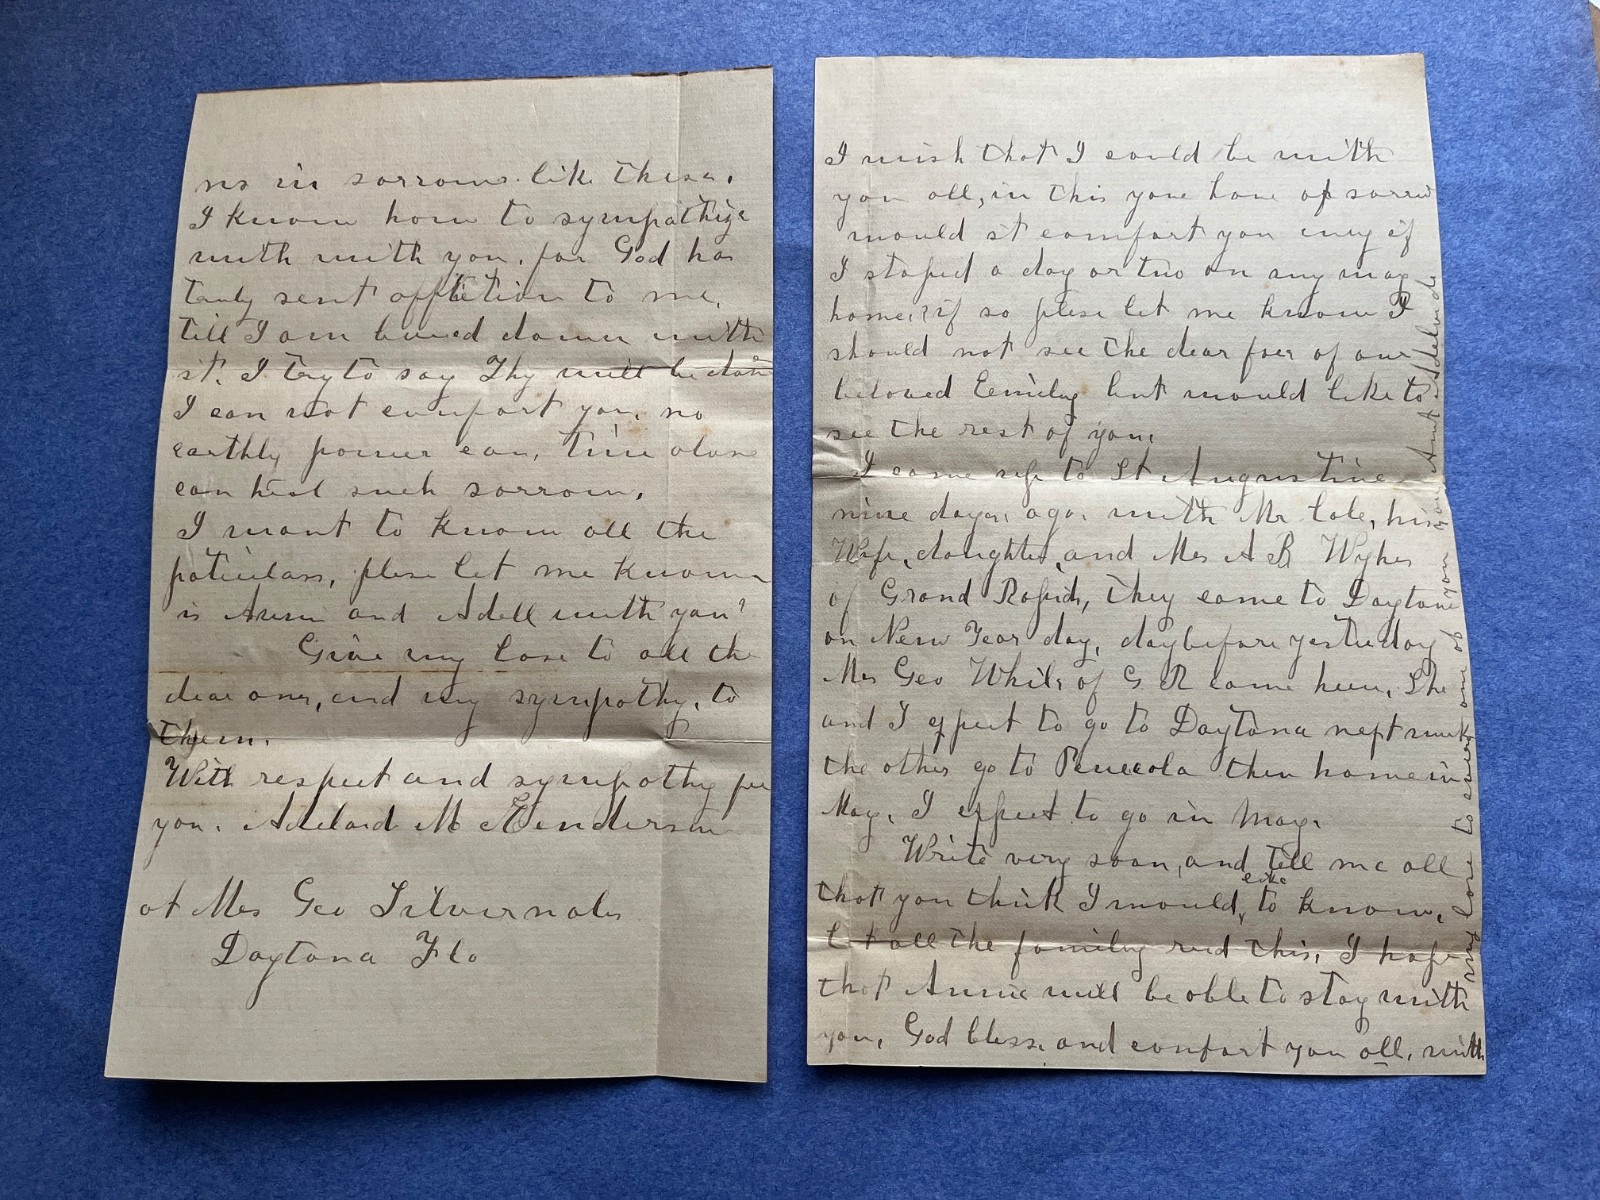 us in sorrows like these.
I know how to sympathize
with with you, for God has
truly sent affliction to me,
till I am bowed down with
it. I try to say Thy will be done
I can not comfort you, no
earthly power can, Time alone
can heal such sorrow.
I want to know all the
paticulars, plese let me know
is Annie and Adell with you?
Give my love to all the
dear ones, and my sympathy, to
them.
With respect and sympathy for
you. Adelaid M Henderson
at Mrs Geo Silvernals
Daytona Fla
I wish that I could be with
you all, in this your hour of sorrow
would it comfort you any if
I stoped a day or two on my way
home, if so plese let me know I
should not see the dear face of our
beloved Emily but would like to
see the rest of you.
I came safe to St Augustine
nine days ago, with Mr Cole, his
Wife, daughter, and Mrs A B Wykes
of Grand Rapids, They came to Daytona
on New Year day, day before yesterday
Mrs Geo White of G R came here, She
and I expect to go to Daytona next week
the other go to Pencola then home in
May, I expect to go in May.
Write very soon, and tell me all
that you think I would like to know,
let all the family red this, I hope
that Annie will be able to stay with
you, God bless and comfort you all, with
my love to every one of you your Aunt Adelaide